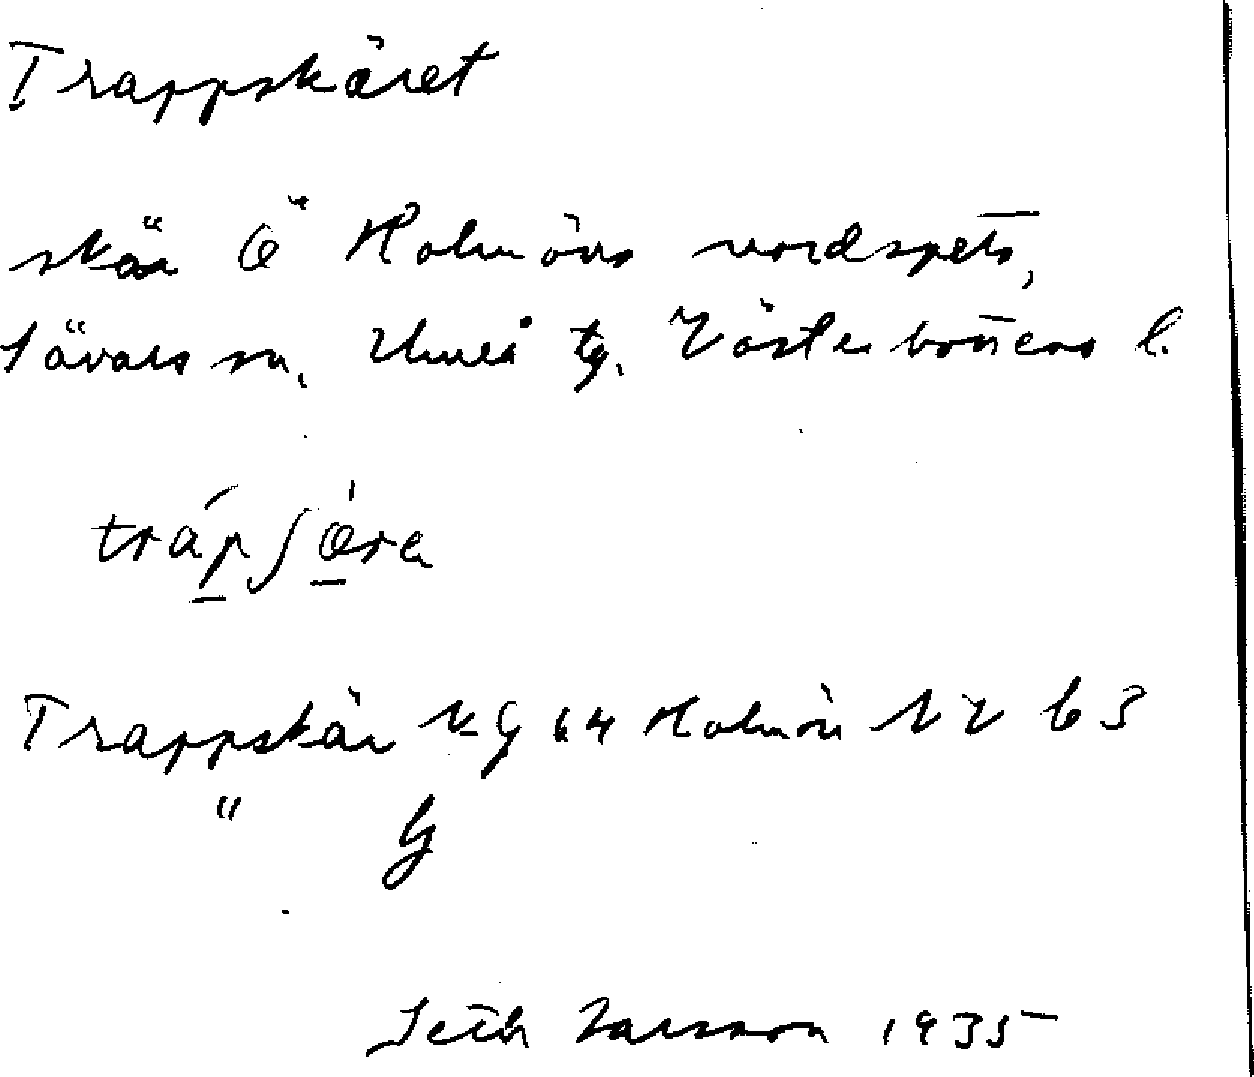 Trappskäret
skär Ö Holmöns nordspets,
Sävars sn. Umeå tg. Västerbottens l.
trápʃæ̀ra
Trappskär Kg 64 Holmön NV b3
" G
Seth Larsson 1935